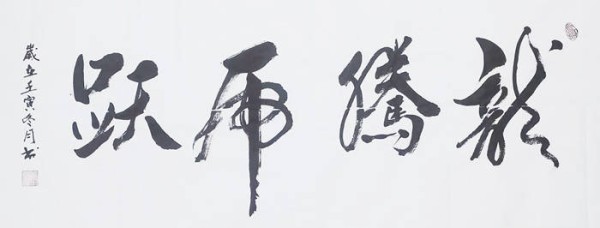 龍騰虎跃
歲在壬寅冬月书